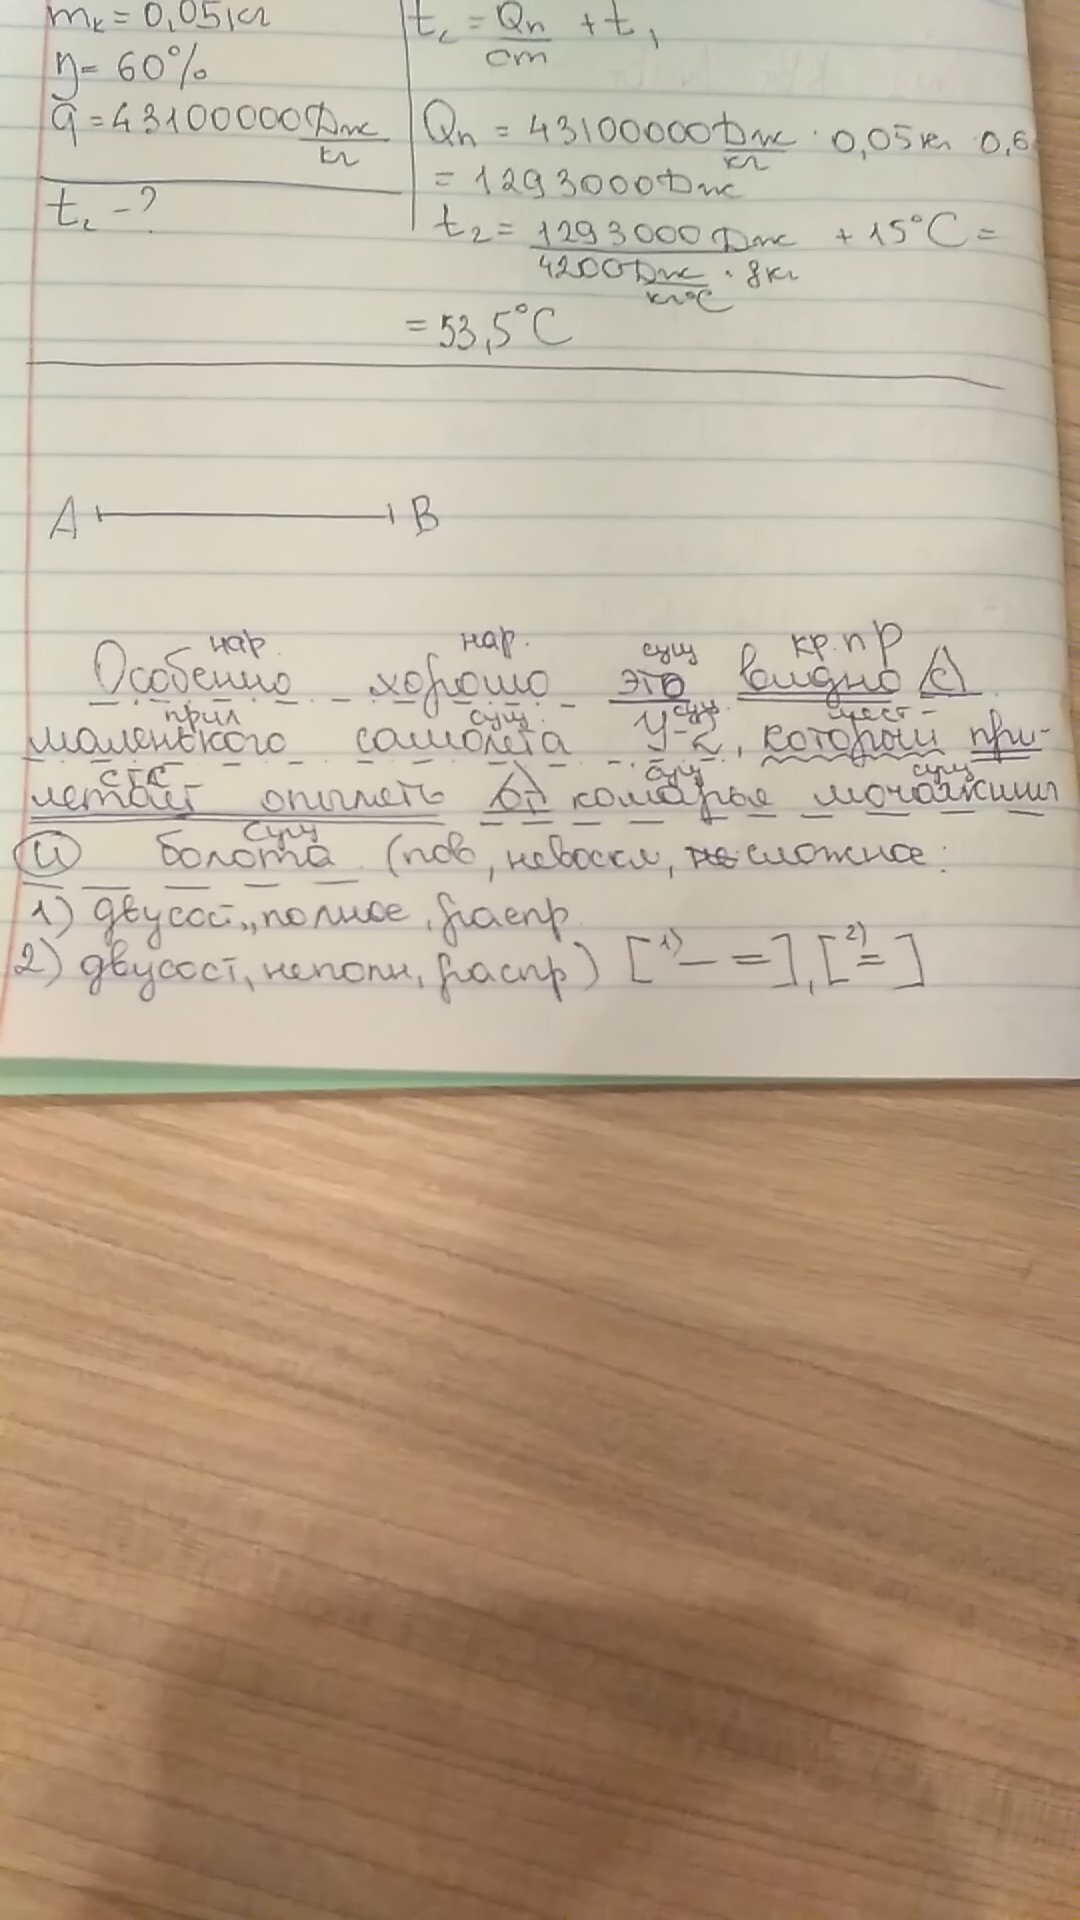 mк = 0,05 кг
η = 60%
q = 43100000 Дж/кг
t₂ - ?
t₂ = Qп/cm + t₁
Qп = 43100000 Дж/кг · 0,05 кг 0,6
= 1293000 Дж
t₂ = 1293000 Дж / 4200 Дж/кг°C · 8 кг + 15°C =
= 53,5°C
A B
нар. нар. сущ кр.пр
Особенно хорошо это видно с
прил сущ. сущ. мест-
маленького самолёта У-2, который при-
сущ сущ
летает опылять от комарья мочажины
сущ
и болота (пов, невоскл, сложное:
1) двусост., полное, распр
2) двусост, неполн, распр) [¹⁾— =], [²⁾= ]